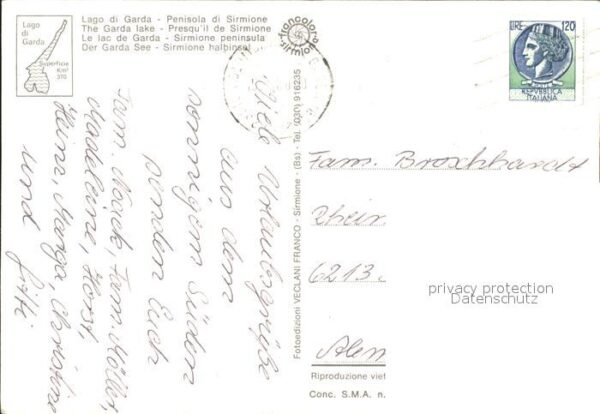 Lago di Garda - Penisola di Sirmione
The Garda lake - Presqu'il de Sirmione
Le lac de Garda - Sirmione peninsula
Der Garda See - Sirmione halbinsel
Lago
di
Garda
Superficie
Km²
370
francolor
sirmione
LIRE 120
REPVBBLICA
ITALIANA
Viele Urlaubsgrüße
aus dem
sonnigen Süden
senden Euch
Fam. Noack, Fam. Müller,
Madeleine, Horst,
Heinz, Marga, Christine
und Gitti
Fotoedizioni VECLANI FRANCO - Sirmione - (Bs) - Tel. (030) 916235
Fam. Broschhardt
6213
privacy protection
Datenschutz
Riproduzione viet
Conc. S.M.A. n.